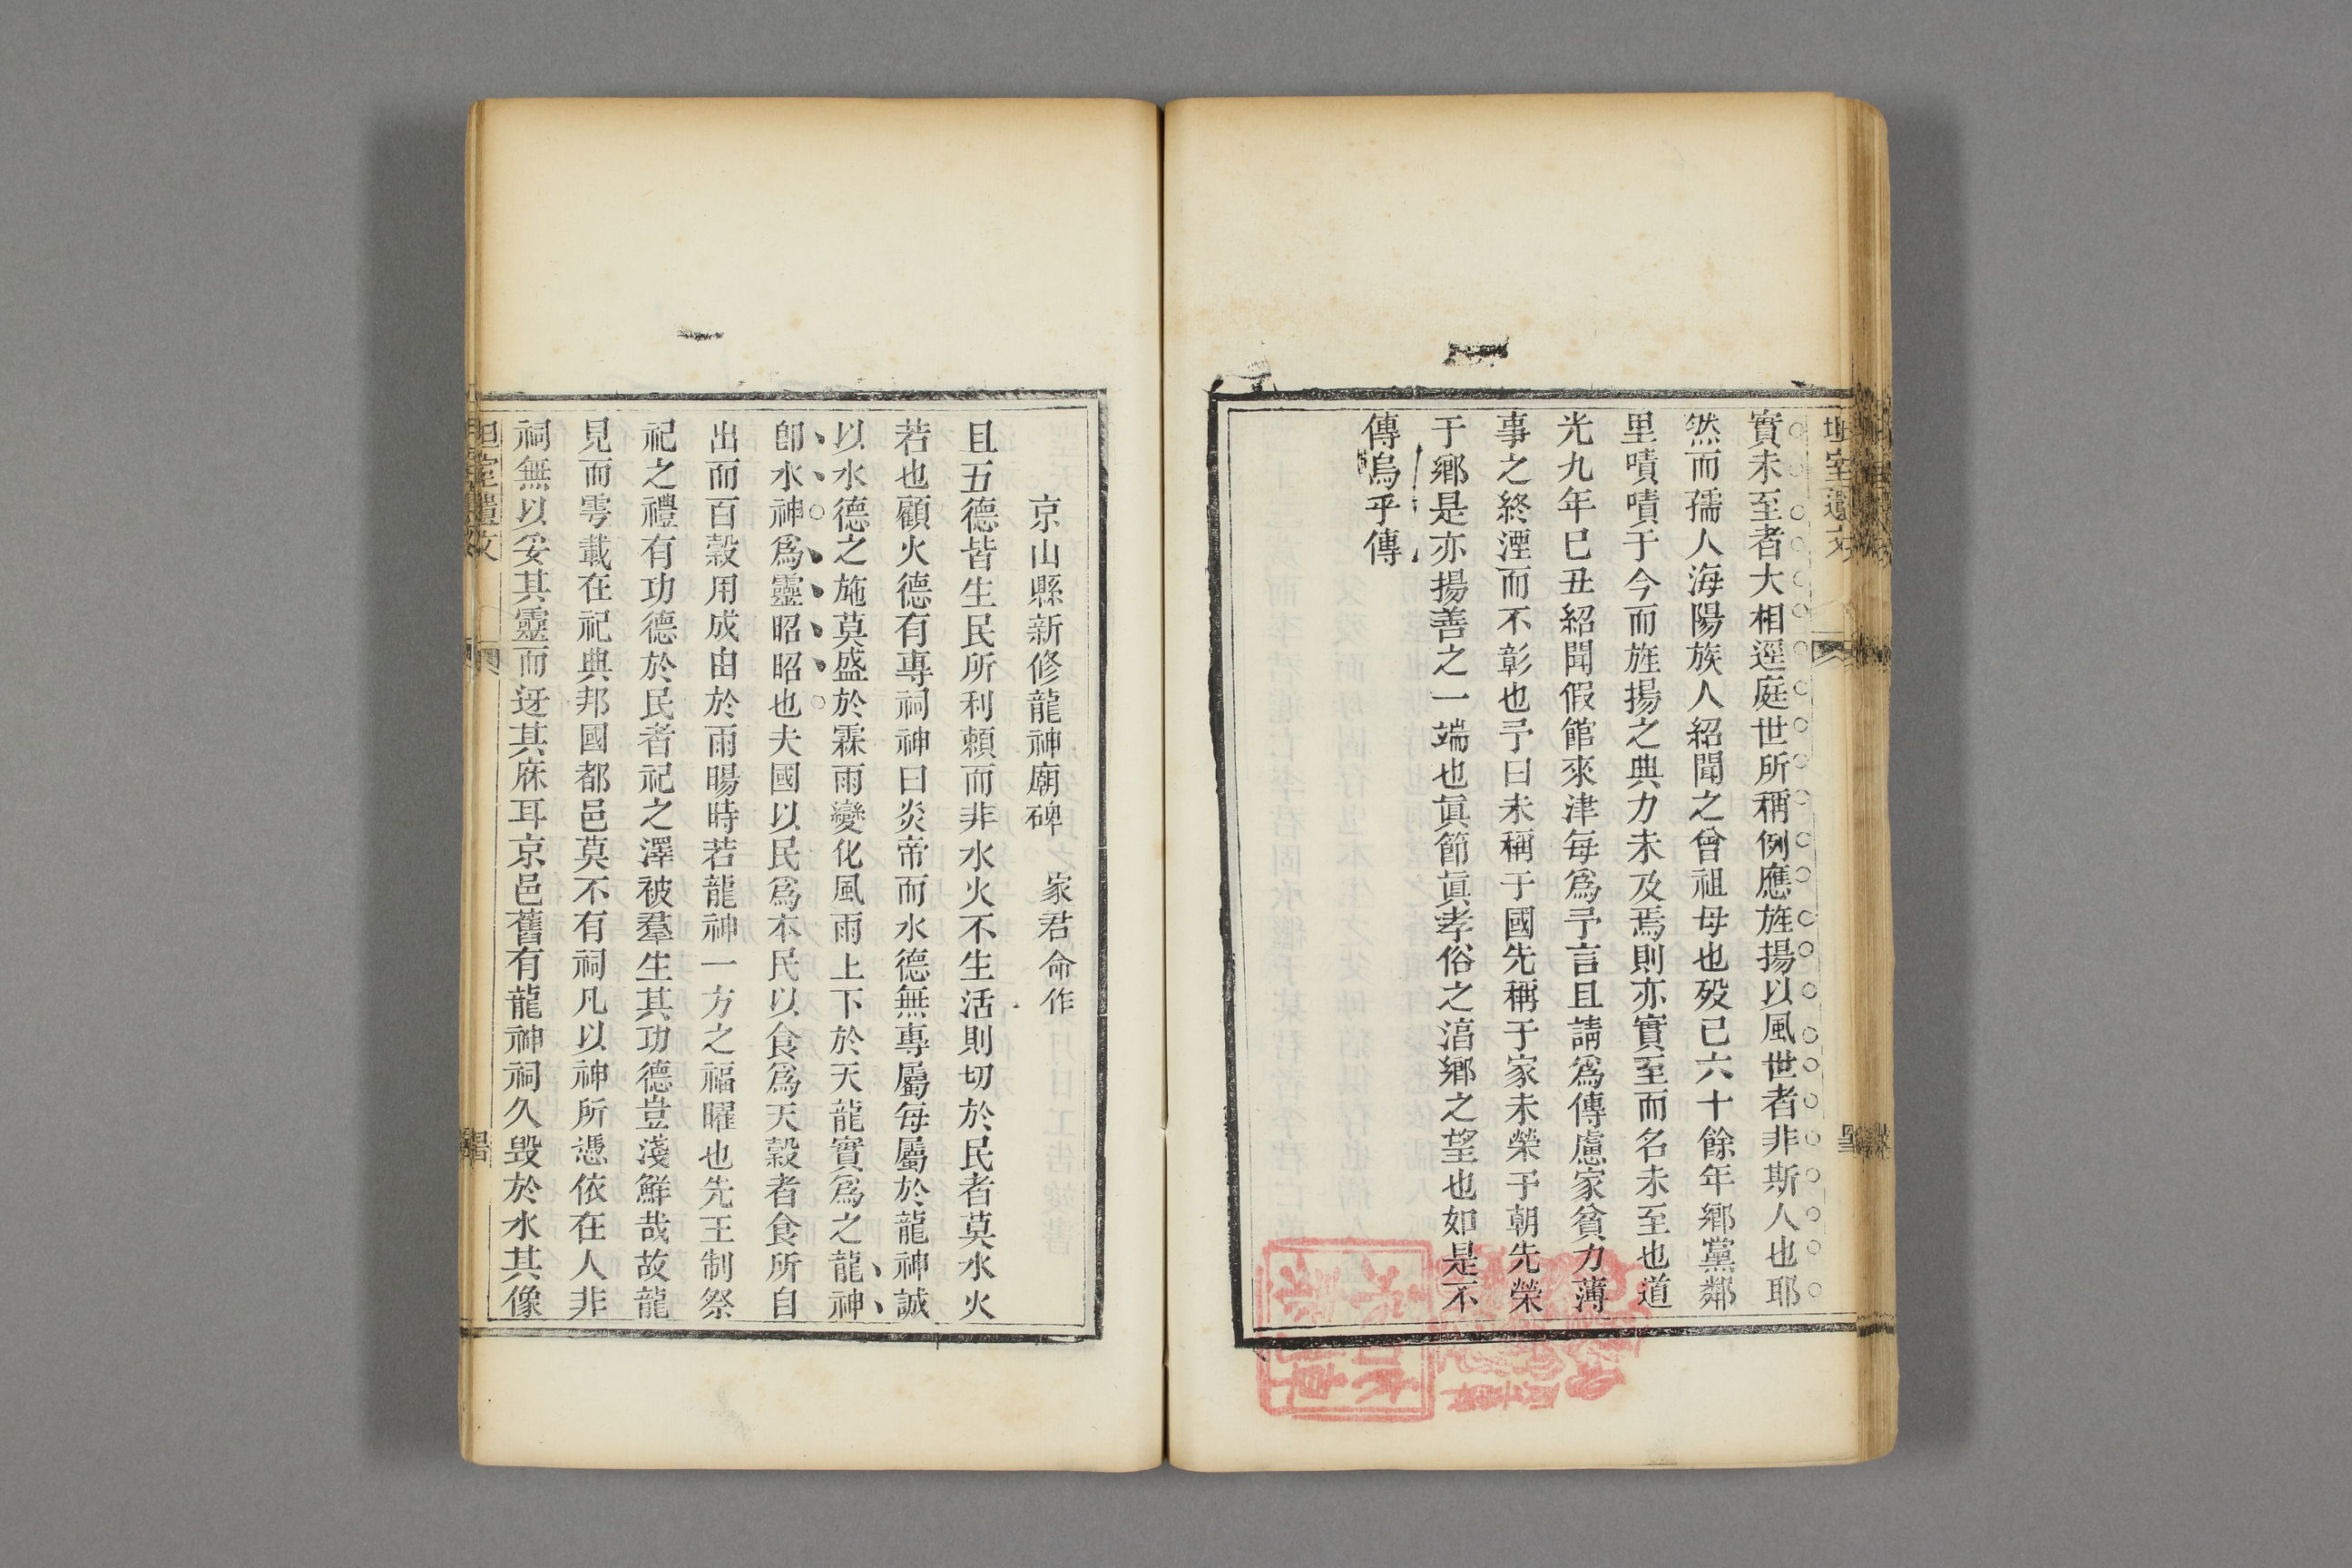 實未至者大相逕庭世所稱例應旌揚以風世者非斯人也耶
然而孺人海陽族人紹聞之曾祖母也歿已六十餘年鄉黨鄰
里嘖嘖于今而旌揚之典力未及焉則亦實至而名未至也道
光九年巳丑紹聞假館來津每爲予言且請爲傳慮家貧力薄
事之終湮而不彰也予曰未稱于國先稱于家未榮于朝先榮
于鄉是亦揚善之一端也眞節眞孝俗之澬鄉之望也如是不
傳烏乎傳
京山縣新修龍神廟碑 家君命作
且五德皆生民所利賴而非水火不生活則切於民者莫水火
若也顧火德有專祠神曰炎帝而水德無專屬每屬於龍神誠
以水德之施莫盛於霖雨變化風雨上下於天龍實爲之龍神
卽水神爲靈昭昭也夫國以民爲本民以食爲天穀者食所自
出而百穀用成由於雨暘時若龍神一方之福曜也先王制祭
祀之禮有功德於民者祀之澤被羣生其功德豈淺鮮哉故龍
見而雩載在祀典邦國都邑莫不有祠凡以神所憑依在人非
祠無以妥其靈而迓其庥耳京邑舊有龍神祠久毁於水其像
室遺文